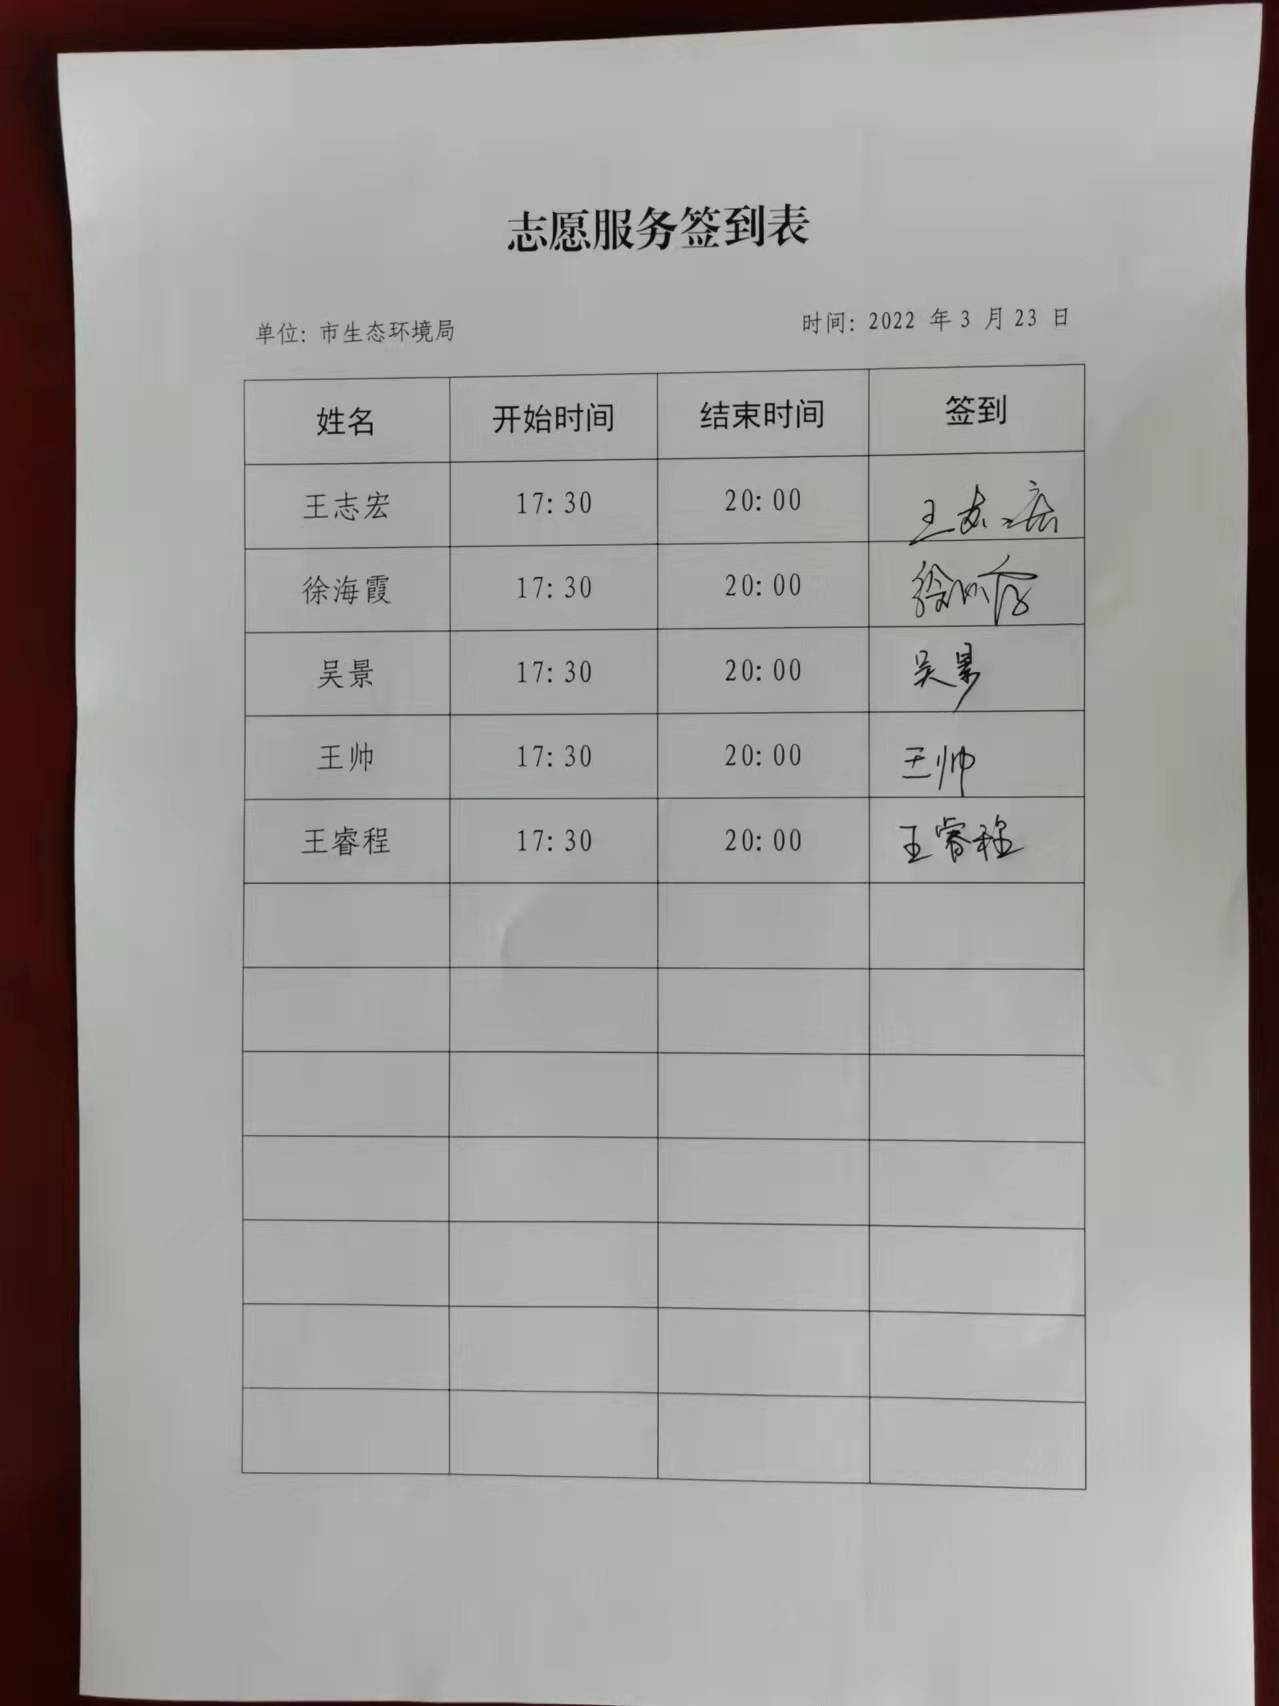 志愿服务签到表
单位: 市生态环境局 时间: 2022 年 3 月 23 日
姓名 开始时间 结束时间 签到
王志宏 17:30 20:00 王志宏
徐海霞 17:30 20:00 徐海霞
吴景 17:30 20:00 吴景
王帅 17:30 20:00 王帅
王睿程 17:30 20:00 王睿程